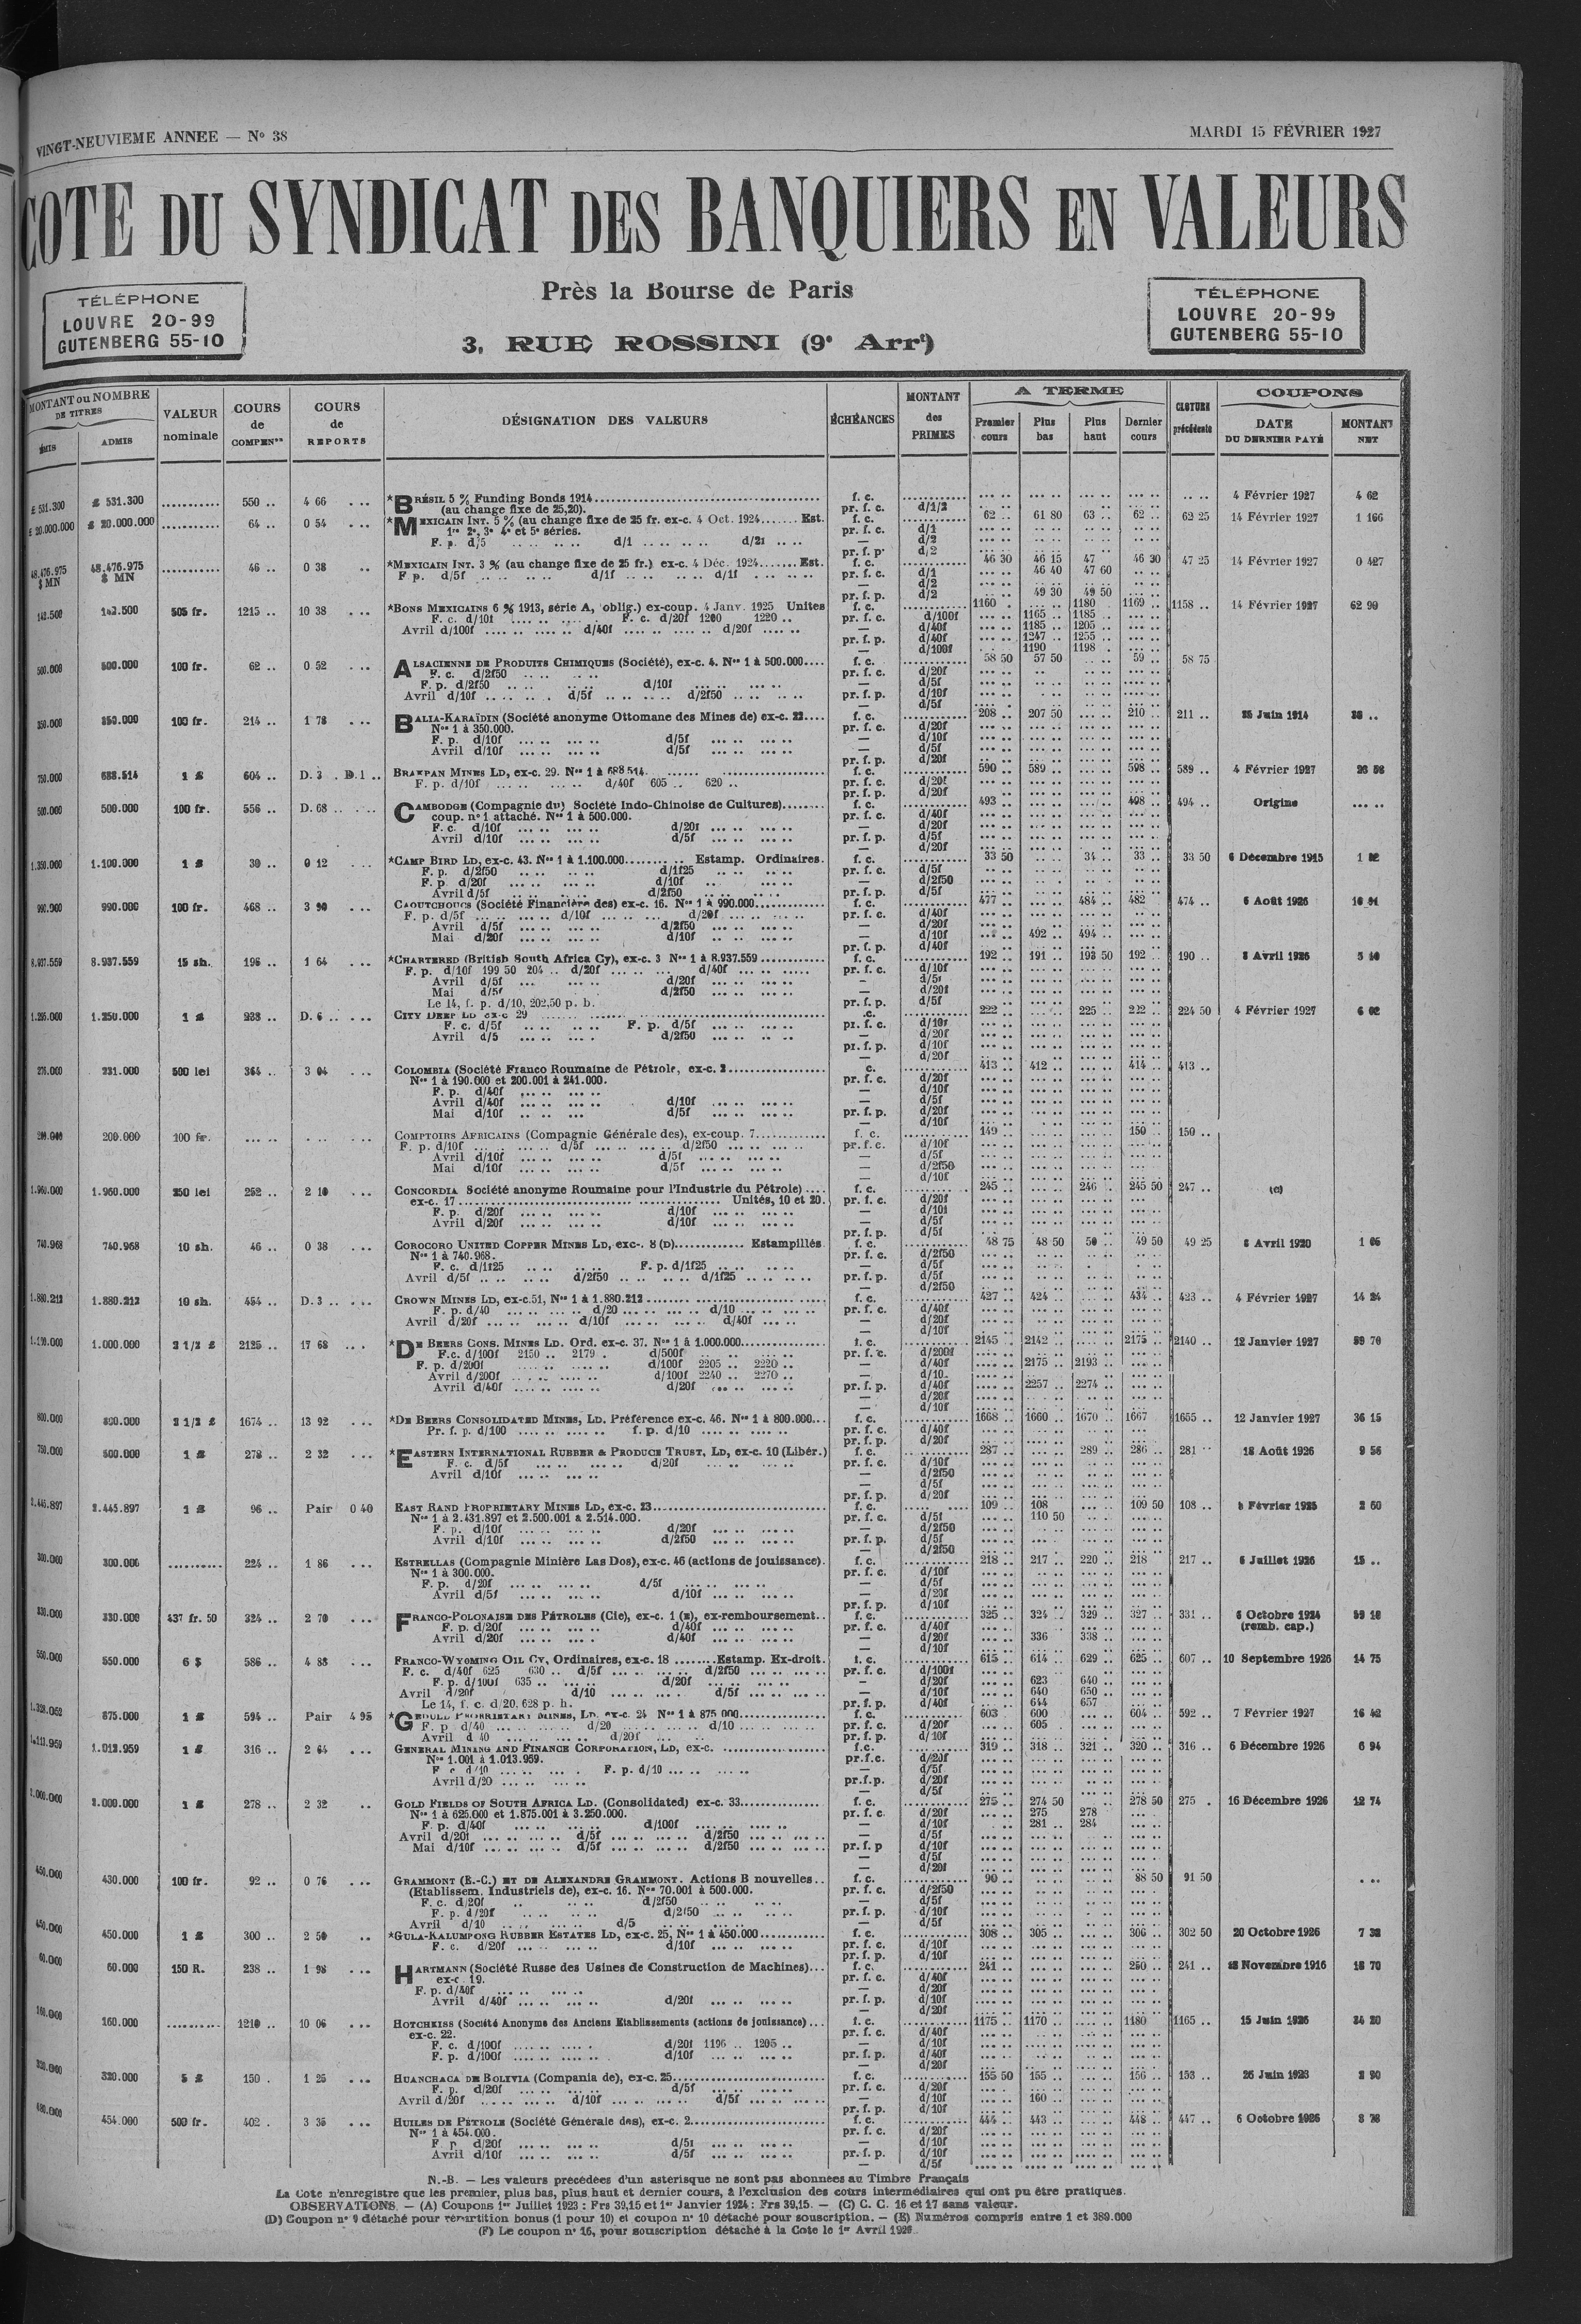 VINGT-NEUVIEME ANNEE — N° 38
MARDI 15 FÉVRIER 1927
COTE DU SYNDICAT DES BANQUIERS EN VALEURS
Près la Bourse de Paris
3, RUE ROSSINI (9e Arrt)
TÉLÉPHONE
LOUVRE 20-99
GUTENBERG 55-10
TÉLÉPHONE
LOUVRE 20-99
GUTENBERG 55-10
MONTANT ou NOMBRE DE TITRES
ÉMIS ADMIS
VALEUR nominale
COURS de COMPENon
COURS de REPORTS
DÉSIGNATION DES VALEURS
ÉCHÉANCES
MONTANT des PRIMES
A TERME
Premier cours Plus bas Plus haut Dernier cours
CLOTURE précédente
COUPONS
DATE DU DERNIER PAYÉ MONTANT NET
£ 531.300 £ 531.300 .......... 550 .. 4 66 *BRÉSIL 5 % Funding Bonds 1914 f. c. 4 Février 1927 4 62
(au change fixe de 25,20). pr. f. c. d/1/2
£ 20.000.000 £ 20.000.000 .......... 64 .. 0 54 *MEXICAIN INT. 5 % (au change fixe de 25 fr. ex-c. 4 Oct. 1924 Est. f. c. 62 .. 61 80 63 .. 62 .. 62 25 14 Février 1927 1 166
1re 2e, 3e 4e et 5e séries. pr. f. c. d/1
F. p. d/5 d/1 d/21 — d/2
pr. f. p. d/2
48.476.975 $ MN 48.476.975 $ MN .......... 46 .. 0 38 *MEXICAIN INT. 3 % (au change fixe de 25 fr.) ex-c. 4 Déc. 1924 Est. f. c. 46 30 46 15 47 46 30 47 25 14 Février 1927 0 427
F p. d/5f d/1f d/1f pr. f. c. d/1 46 40 47 60
— d/2
pr. f. p. d/2 49 30 49 50
142.500 142.500 505 fr. 1215 .. 10 38 *BONS MEXICAINS 6 % 1913, série A, oblig.) ex-coup. 4 Janv. 1925 Unites f. c. 1160 1180 1169 1158 .. 14 Février 1927 62 99
F. c. d/10f F. c. d/20f 1200 1220 .. pr. f. c. d/100f 1165 1185
Avril d/100f d/40f d/20f — d/40f 1185 1205
pr. f. p. d/40f 1247 1255
— d/100f 1190 1198
500.000 500.000 100 fr. 62 .. 0 52 ALSACIENNE DE PRODUITS CHIMIQUES (Société), ex-c. 4. Nos 1 à 500.000 f. c. 58 50 57 50 59 .. 58 75
F. c. d/2f50 pr. f. c. d/20f
F. p. d/2f50 d/10f — d/5f
Avril d/10f d/5f d/2f50 pr. f. p. d/10f
— d/5f
350.000 350.000 100 fr. 214 .. 1 78 BALIA-KARAÏDIN (Société anonyme Ottomane des Mines de) ex-c. 22 f. c. 208 .. 207 50 210 .. 211 .. 25 Juin 1914
Nos 1 à 350.000. pr. f. c. d/20f
F. p. d/10f d/5f — d/10f
Avril d/10f d/5f — d/5f
pr. f. p. d/20f
750.000 688.514 1 £ 604 .. D. 3 D.1 .. BRAKPAN MINES LD, ex-c. 29. Nos 1 à 688 514. f. c. 590 .. 589 .. 598 .. 589 .. 4 Février 1927 23 58
F. p. d/10f d/40f 605 .. 620 .. pr. f. c. d/20f
pr. f. p. d/20f
500.000 500.000 100 fr. 556 .. D. 68 .. CAMBODGE (Compagnie du) Société Indo-Chinoise de Cultures) f. c. 493 .. 498 .. 494 .. Origine
coup. no 1 attaché. Nos 1 à 500.000. pr. f. c. d/40f
F. c. d/10f d/20f — d/20f
Avril d/10f d/5f pr. f. p. d/5f
— d/20f
1.350.000 1.100.000 1 £ 30 .. 0 12 *CAMP BIRD LD, ex-c. 43. Nos 1 à 1.100.000 Estamp. Ordinaires. f. c. 33 50 34 .. 33 .. 33 50 6 Décembre 1915
F. p. d/2f50 d/1f25 pr. f. c. d/5f
F. p. d/20f d/10f — d/2f50
Avril d/5f d/2f50 pr. f. p. d/5f
990.000 990.000 100 fr. 468 .. 3 90 CAOUTCHOUCS (Société Financière des) ex-c. 16. Nos 1 à 990.000 f. c. 477 .. 484 .. 482 474 .. 6 Août 1926
F. p. d/5f d/10f d/20f pr. f. c. d/40f
Avril d/5f d/2f50 — d/20f
Mai d/20f d/10f — d/10f 492 .. 494 ..
pr. f. p. d/40f
8.937.559 8.937.559 15 sh. 196 .. 1 64 *CHARTERED (British South Africa Cy), ex-c. 3 Nos 1 à 8.937.559 f. c. 192 .. 191 .. 193 50 192 .. 190 .. 8 Avril 1926 5 40
F. p. d/10f 199 50 204 .. d/20f d/40f pr. f. c. d/10f
Avril d/5f d/20f — d/5f
Mai d/5f d/2f50 — d/20f
Le 14, f. p. d/10, 202,50 p. b. pr. f. p. d/5f
1.295.000 1.250.000 1 £ 238 .. D. 6 .. CITY DEEP LD ex-c 29 f.c. 222 .. 225 .. 222 .. 224 50 4 Février 1927 6 02
F. c. d/5f F. p. d/5f pr. f. c. d/10f
Avril d/5 d/2f50 — d/20f
pr. f. p. d/10f
— d/20f
276.000 231.000 500 lei 364 .. 3 04 COLOMBIA (Société Franco Roumaine de Pétrole, ex-c. 2 c. 413 .. 412 .. 414 .. 413 ..
Nos 1 à 190.000 et 200.001 à 241.000. pr. f. c. d/20f
F. p. d/40f — d/10f
Avril d/40f d/10f — d/5f
Mai d/10f d/5f pr. f. p. d/20f
— d/10f
200.000 200.000 100 fr. COMPTOIRS AFRICAINS (Compagnie Générale des), ex-coup. 7 f. c. 149 .. 150 .. 150 ..
F. p. d/10f d/5f d/2f50 pr. f. c. d/10f
Avril d/10f d/5f — d/5f
Mai d/10f d/5f — d/2f50
— d/10f
1.960.000 1.960.000 250 lei 252 .. 2 10 CONCORDIA Société anonyme Roumaine pour l'Industrie du Pétrole) f. c. 245 .. 246 .. 245 50 247 .. (c)
ex-c. 17 Unités, 10 et 20. pr. f. c. d/20f
F. p. d/20f d/10f — d/10f
Avril d/20f d/10f — d/5f
pr. f. p. d/5f
740.968 740.968 10 sh. 46 .. 0 38 COROCORO UNITED COPPER MINES LD, ex-c. 8 (D) Estampillés f. c. 48 75 48 50 50 .. 49 50 49 25 8 Avril 1920 1 06
Nos 1 à 740.968. pr. f. c. d/2f50
F. c. d/1f25 F. p. d/1f25 — d/5f
Avril d/5f d/2f50 d/1f25 pr. f. p. d/5f
— d/2f50
1.880.212 1.880.212 10 sh. 454 .. D. 3 .. CROWN MINES LD, ex-c.51, Nos 1 à 1.880.212 f. c. 427 .. 424 .. 434 .. 423 .. 4 Février 1927 14 24
F. p. d/40 d/20 d/10 pr. f. c. d/40f
Avril d/20f d/10f d/40f — d/20f
— d/10f
1.000.000 2 1/2 £ 2125 .. 17 68 *DE BEERS CONS. MINES LD. Ord. ex-c. 37. Nos 1 à 1.000.000 f. c. 2145 .. 2142 .. 2175 .. 2140 .. 12 Janvier 1927
F.c. d/100f 2150 .. 2179 . d/500f pr. f. c. d/200f
F. p. d/200f d/100f 2205 .. 2220 .. — d/40f 2175 .. 2193 ..
Avril d/200f d/100f 2240 .. 2270 .. — d/10
Avril d/40f d/20f pr. f. p. d/40f 2257 .. 2274 ..
— d/20f
— d/10f
800.000 800.000 2 1/2 £ 1674 .. 13 92 *DE BEERS CONSOLIDATED MINES, LD. Préférence ex-c. 46. Nos 1 à 800.000 f. c. 1668 .. 1660 .. 1670 .. 1667 1655 .. 12 Janvier 1927 36 15
Pr. f. p. d/100 f. p. d/10 pr. f. c. d/40f
pr. f. p. d/20f
750.000 500.000 1 £ 278 .. 2 32 *EASTERN INTERNATIONAL RUBBER & PRODUCE TRUST, LD, ex-c. 10 (Libér.) f. c. 287 .. 289 .. 286 .. 281 .. 18 Août 1926 9 56
F. c. d/5f d/20f pr. f. c. d/10f
Avril d/10f — d/2f50
— d/5f
pr. f. p. d/20f
2.445.897 2.445.897 1 £ 96 .. Pair 0 40 EAST RAND PROPRIETARY MINES LD, ex-c. 23 f. c. 109 .. 108 109 50 108 .. 8 Février 1925 2 60
Nos 1 à 2.431.897 et 2.500.001 à 2.514.000. pr. f. c. d/5f 110 50
F. p. d/10f d/20f — d/2f50
Avril d/10f d/2f50 pr. f. p. d/5f
— d/2f50
300.000 300.000 .......... 224 .. 1 86 ESTRELLAS (Compagnie Minière Las Dos), ex-c. 46 (actions de jouissance). f. c. 218 .. 217 .. 220 .. 218 217 .. 6 Juillet 1926 15 ..
Nos 1 à 300.000. pr. f. c. d/10f
F. p. d/20f d/5f — d/5f
Avril d/5f d/10f — d/20f
pr. f. p. d/10f
330.000 330.000 437 fr. 50 324 .. 2 70 FRANCO-POLONAISE DES PÉTROLES (Cie), ex-c. 1 (E), ex-remboursement f. c. 325 .. 324 .. 329 .. 327 .. 331 .. 6 Octobre 1924
F. p. d/20f d/40f pr. f. c. d/40f (remb. cap.)
Avril d/20f d/40f — d/20f 336 338 ..
— d/10f
550.000 550.000 6 $ 586 .. 4 88 FRANCO-WYOMING OIL Cy, Ordinaires, ex-c. 18 Estamp. Ex-droit. f. c. 615 .. 614 .. 629 .. 625 .. 607 .. 10 Septembre 1926 14 75
F. c. d/40f 625 630 .. d/5f d/2f50 pr. f. c. d/100f
F. p. d/100f 635 .. d/20f — d/20f 623 640 ..
Avril d/20f d/10 d/5f — d/10f 640 650 ..
Le 14, f. c. d/20, 628 p. h. pr. f. p. d/40f 644 657
875.000 1 £ 594 .. Pair 4 95 *GEDULD PROPRIETARY MINES, LD. ex-c. 24 Nos 1 à 875 000 f. c. 603 .. 600 604 .. 592 .. 7 Février 1927 16 42
F. p d/40 d/20 d/10 pr. f. c. d/20f 605
Avril d 40 d/20f pr. f. p. d/10f
1.113.959 1.013.959 1 £ 316 .. 2 64 GENERAL MINING AND FINANCE CORPORATION, LD, ex-c. f.c. 319 .. 318 .. 321 .. 320 .. 316 .. 6 Décembre 1926 6 94
Nos 1.001 à 1.013.959. pr.f.c. d/20f
F c d/10 F. p. d/10 — d/5f
Avril d/20 pr.f.p. d/20f
— d/5f
2.000.000 1 £ 278 .. 2 32 GOLD FIELDS OF SOUTH AFRICA LD. (Consolidated) ex-c. 33 f. c. 275 .. 274 50 278 50 275 . 16 Décembre 1926 12 74
Nos 1 à 625.000 et 1.875.001 à 3.250.000. pr. f. c. d/20f 275 278
F. p. d/40f d/100f — d/10f 281 .. 284
Avril d/20f d/5f d/2f50 — d/5f
Mai d/10f d/5f d/2f50 pr. f. p d/10f
— d/5f
— d/20f
450.000 430.000 100 fr. 92 .. 0 76 GRAMMONT (E.-C.) ET DE ALEXANDRE GRAMMONT. Actions B nouvelles f. c. 90 .. 88 50 91 50
(Etablissem. Industriels de), ex-c. 16. Nos 70.001 à 500.000. pr. f. c. d/2f50
F. c. d/20f d/2f50 — d/5f
F. p. d/20f d/2f50 pr. f. p. d/10f
Avril d/10 d/5 — d/5f
450.000 450.000 1 £ 300 .. 2 50 *GULA-KALUMPONG RUBBER ESTATES LD, ex-c. 25, Nos 1 à 450.000 f. c. 308 .. 305 .. 306 .. 302 50 20 Octobre 1926 7 32
F. c. d/20f d/10f pr. f. c. d/10f
pr. f. p. d/10f
60.000 60.000 150 R. 238 .. 1 98 HARTMANN (Société Russe des Usines de Construction de Machines) f. c. 241 .. 250 .. 241 .. Novembre 1916 18 70
ex-c. 19. pr. f. c. d/40f
F. p. d/40f — d/20f
Avril d/40f d/20f pr. f. p. d/10f
— d/20f
160.000 160.000 .......... 1210 .. 10 06 HOTCHKISS (Société Anonyme des Anciens Etablissements (actions de jouissance) f. c. 1175 .. 1170 .. 1180 1165 .. 15 Juin 1926 34 20
ex-c. 22. pr. f. c. d/40f
F. c. d/100f d/20f 1196 .. 1205 .. — d/10f
F. p. d/100f d/10f pr. f. p. d/40f
— d/20f
320.000 320.000 5 £ 150 . 1 25 HUANCHACA DE BOLIVIA (Compania de), ex-c. 25 f. c. 155 50 155 .. 156 .. 153 .. 26 Juin 1923 2 90
F. p. d/20f d/5f pr. f. c. d/20f
Avril d/20f d/10f d/5f — d/10f 160 ..
pr. f. p. d/10f
454.000 500 fr. 402 . 3 35 HUILES DE PÉTROLE (Société Générale des), ex-c. 2 f. c. 444 .. 443 .. 448 .. 447 .. 6 Octobre 1926 8 78
Nos 1 à 454.000. pr. f. c. d/20f
F p d/20f d/5f — d/10f
Avril d/10f d/5f pr. f. p. d/10f
— d/5f
N.-B. — Les valeurs précédées d'un astérisque ne sont pas abonnées au Timbre Français
La Cote n'enregistre que les premier, plus bas, plus haut et dernier cours, à l'exclusion des cours intermédiaires qui ont pu être pratiqués.
OBSERVATIONS. — (A) Coupons 1er Juillet 1923 : Frs 39,15 et 1er Janvier 1924 : Frs 39,15. — (C) C. C. 16 et 17 sans valeur.
(D) Coupon no 9 détaché pour répartition bonus (1 pour 10) et coupon no 10 détaché pour souscription. — (E) Numéros compris entre 1 et 389.000
(F) Le coupon no 16, pour souscription détaché à la Cote le 1er Avril 1926.